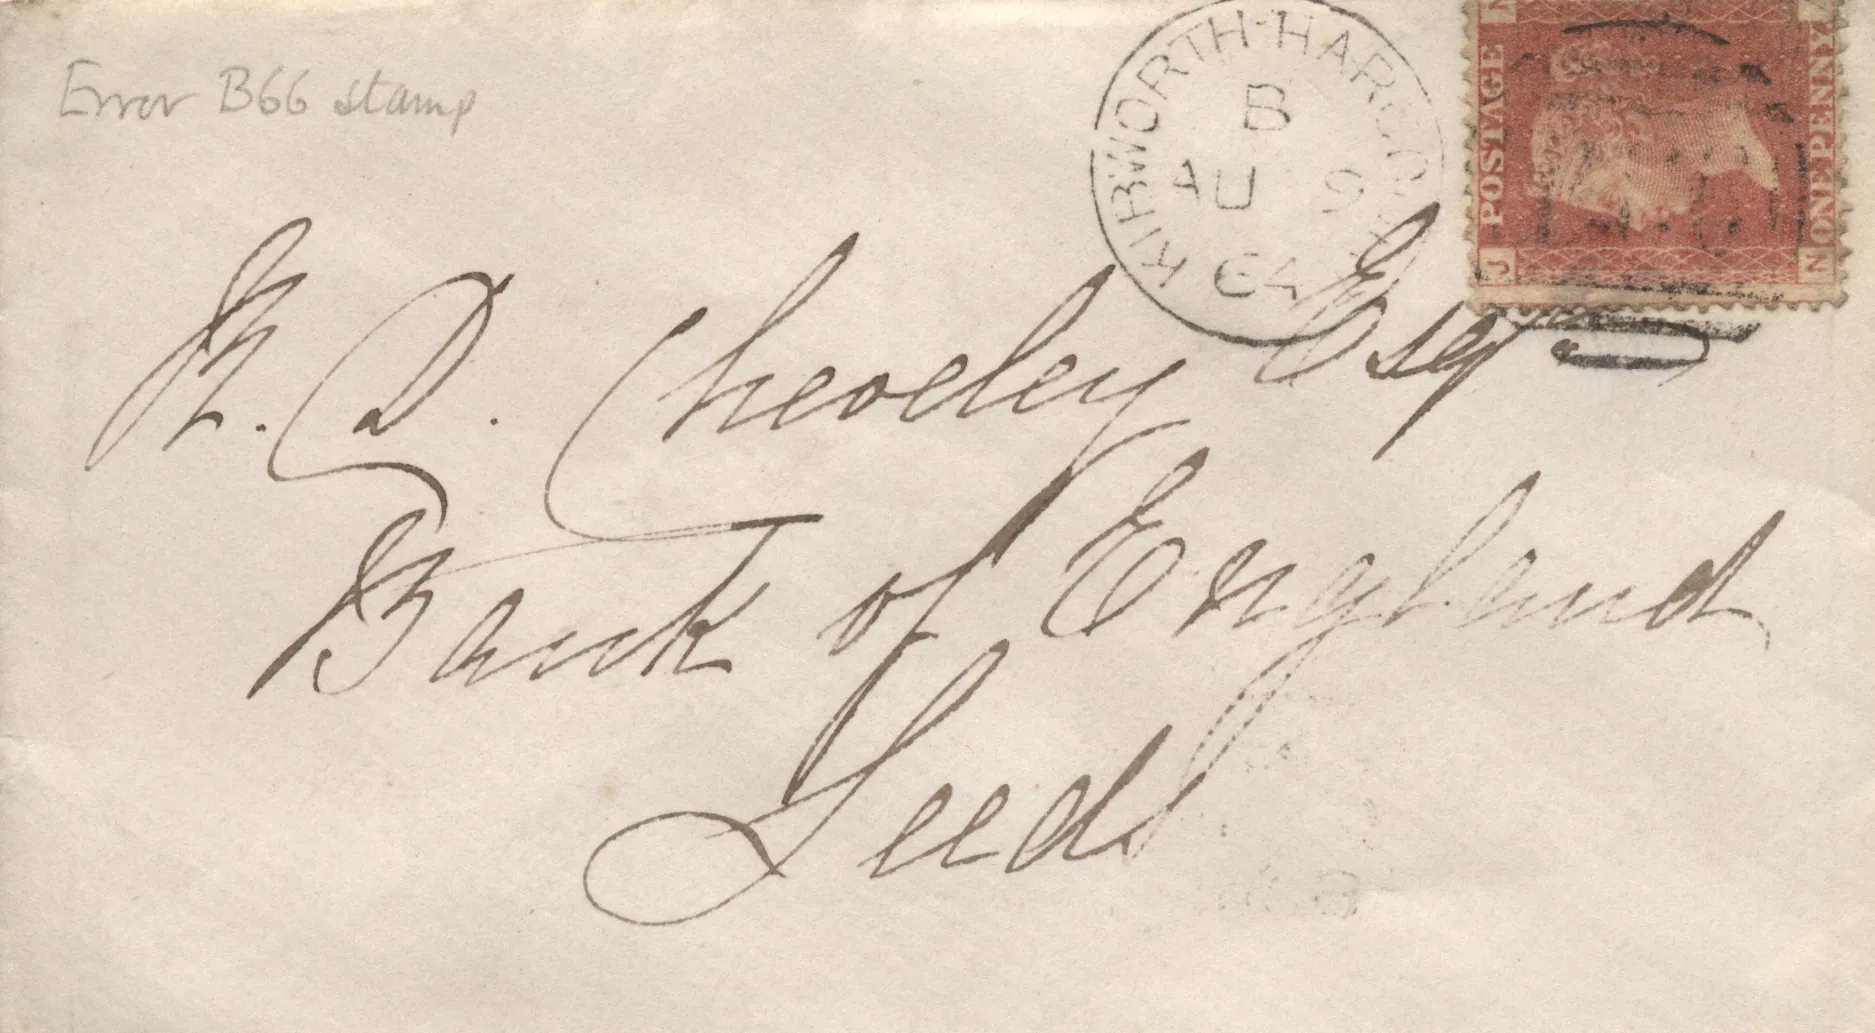 Error B66 stamp
KIBWORTH-HARCOURT
B
AU 9
64
POSTAGE
ONE PENNY
J N
D. Cheoeley Esqr
Bank of England
Leeds